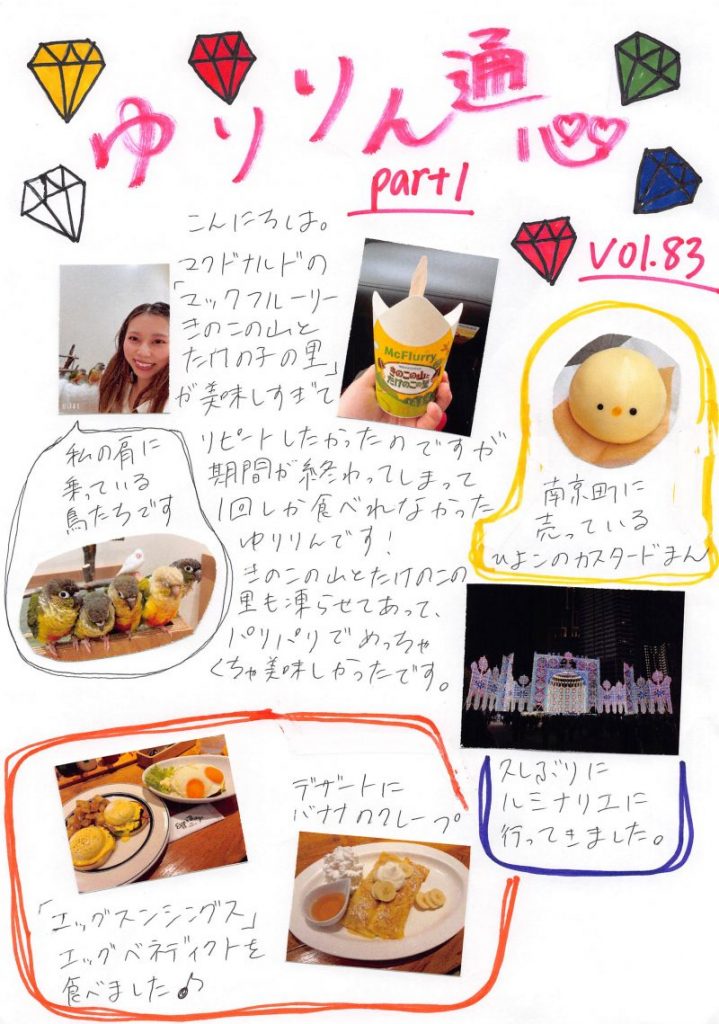 ゆりりん通心
part1
vol.83
こんにちは。
マクドナルドの
「マックフルーリー
きのこの山と
たけの子の里」
が美味しすぎて
リピートしたかったのですが
期間が終わってしまって
1回しか食べれなかった
ゆりりんです!
きのこの山とたけのこの
里も凍らせてあって、
パリパリでめっちゃ
くちゃ美味しかったです。
McFlurry
きのこの山と
たけのこの里
私の肩に
乗っている
鳥たちです
南京町に
売っている
ひよこのカスタードまん
久しぶりに
ルミナリエに
行ってきました。
デザートに
バナナのクレープ
「エッグスンシングス」
エッグベネディクトを
食べました♪